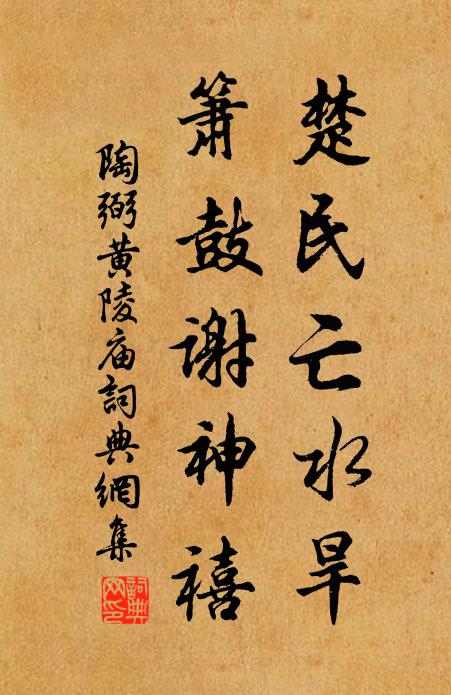 楚民亡水旱
箫鼓谢神禧
陶弼黄陵庙詞典網集
詞典網印